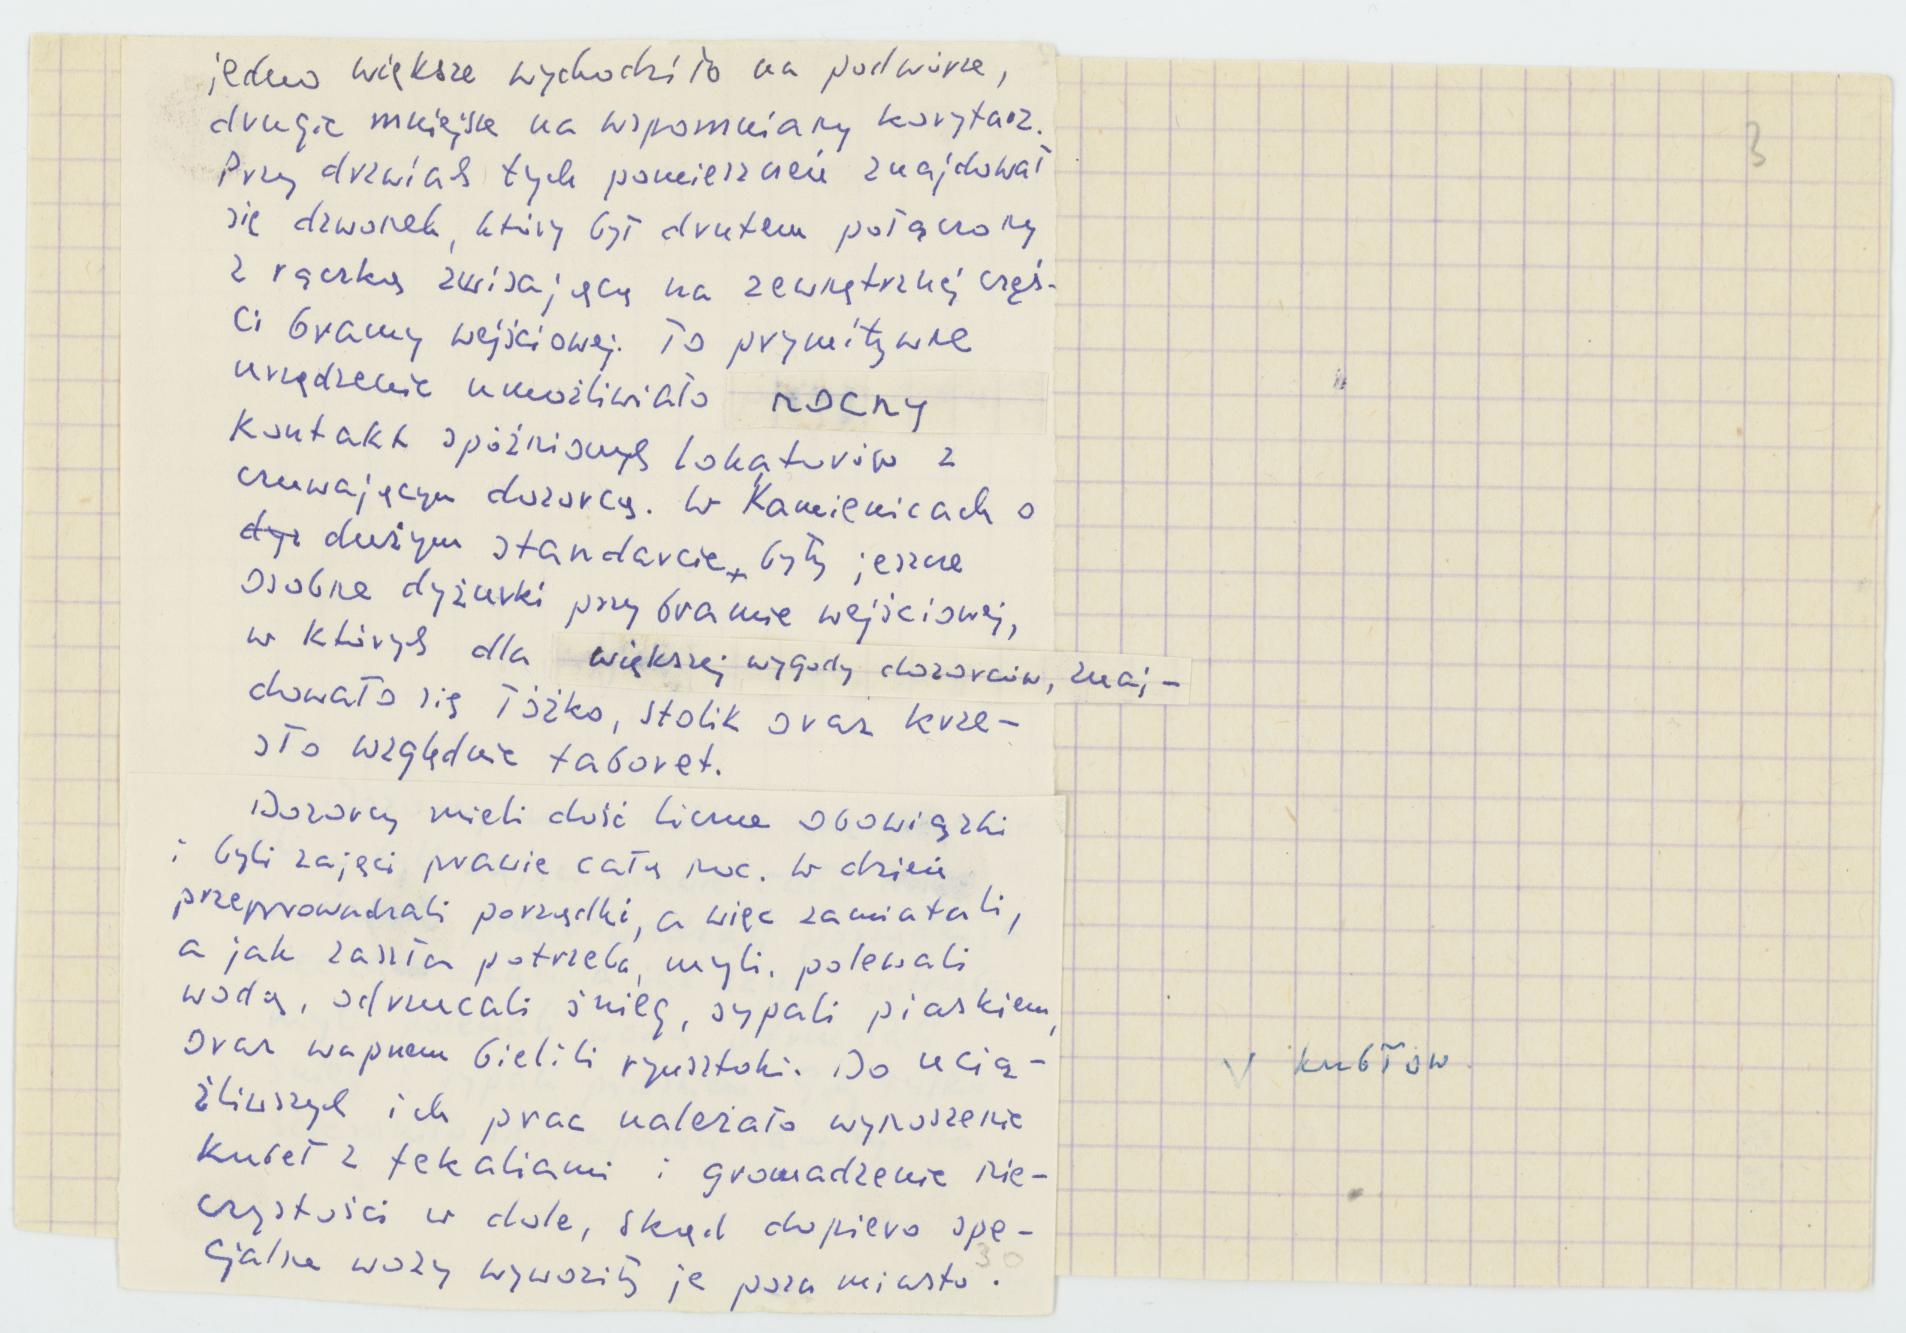 jedno większe wychodziło na podwórze,
drugie mniejsze na wspomniany korytarz.
Przy drzwiach tych pomieszczeń znajdował
się dzwonek, który był drutem połączony
z rączką zwisającą na zewnętrznej częś-
ci bramy wejściowej. To prymitywne
urządzenie umożliwiało nocny
kontakt spóźnionych lokatorów z
czuwającym dozorcą. W Kamienicach o
dyż dużym standarcie były jeszcze
osobne dyżurki przy bramie wejściowej,
w których dla większej wygody dozorców, znaj-
dowało się łóżko, stolik oraz krze-
sło względnie taboret.
Dozorcy mieli dość liczne obowiązki
i byli zajęci prawie całą noc. W dzień
przeprowadzali porządki, a więc zamiatali,
a jak zaszła potrzeba, myli, polewali
wodą, odrzucali śnieg, sypali piaskiem,
oraz wapnem bielili rynsztoki. Do ucią-
żliwszych ich prac należało wynoszenie
kubeł z fekaliami i gromadzenie nie-
czystości w dole, skąd dopiero spe-
cjalne wozy wywoziły je poza miasto.
30
3
V kubłów